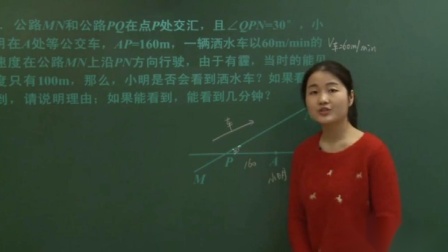 公路MN和公路PQ在点P处交汇，且∠QPN=30°，小
明在A处等公交车，AP=160m，一辆洒水车以60m/min的
速度在公路MN上沿PN方向行驶，由于有霾，当时的能见
度只有100m，那么，小明是否会看到洒水车？如果看
到，请说明理由；如果能看到，能看到几分钟？
V车=60m/min
车
P
160
A
M
小明